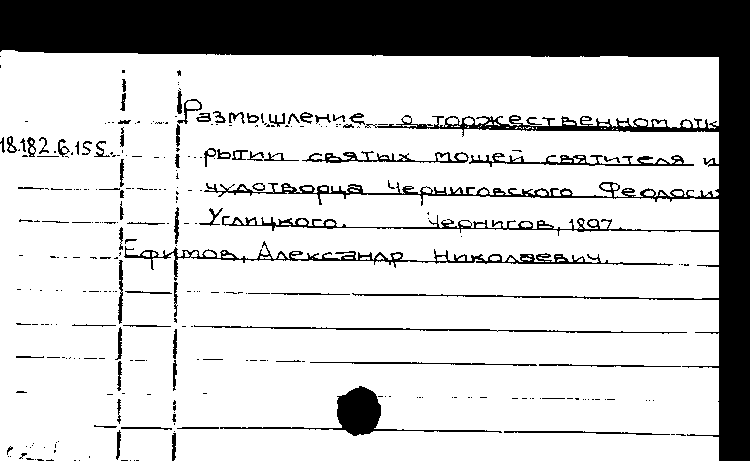 Размышление о торжественном отк
18.182.6.155.
рытии святых мощей святителя и
чудотворца Черниговского Феодоси
Углицкого. Чернигов, 1897.
Ефимов, Александр Николаевич.